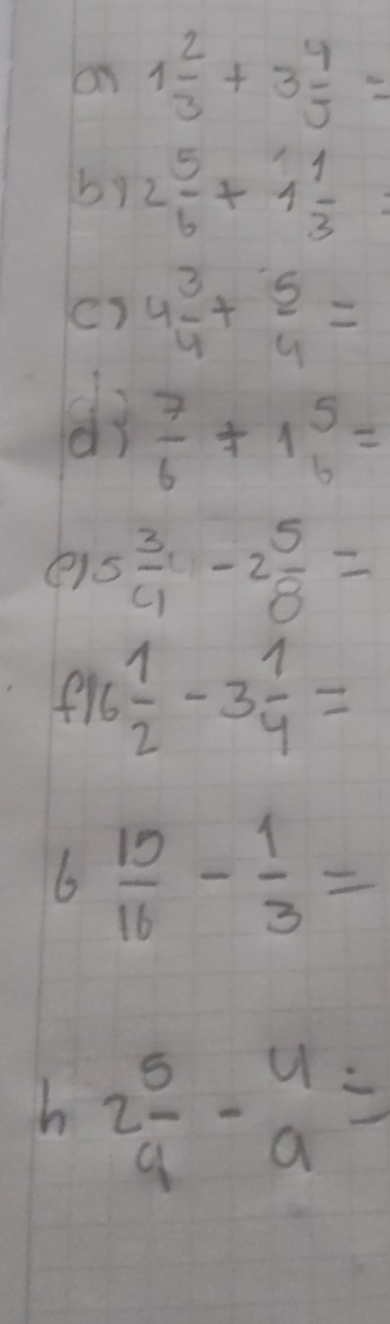 a) 1 2/3 + 3 4/5 =
b) 2 5/6 + 1 1/3 =
c) 4 3/4 + 5/4 =
d) 7/6 + 1 5/6 =
e) 5 3/4 - 2 5/8 =
f) 6 1/2 - 3 1/4 =
6 15/16 - 1/3 =
h 2 5/9 - 4/9 =